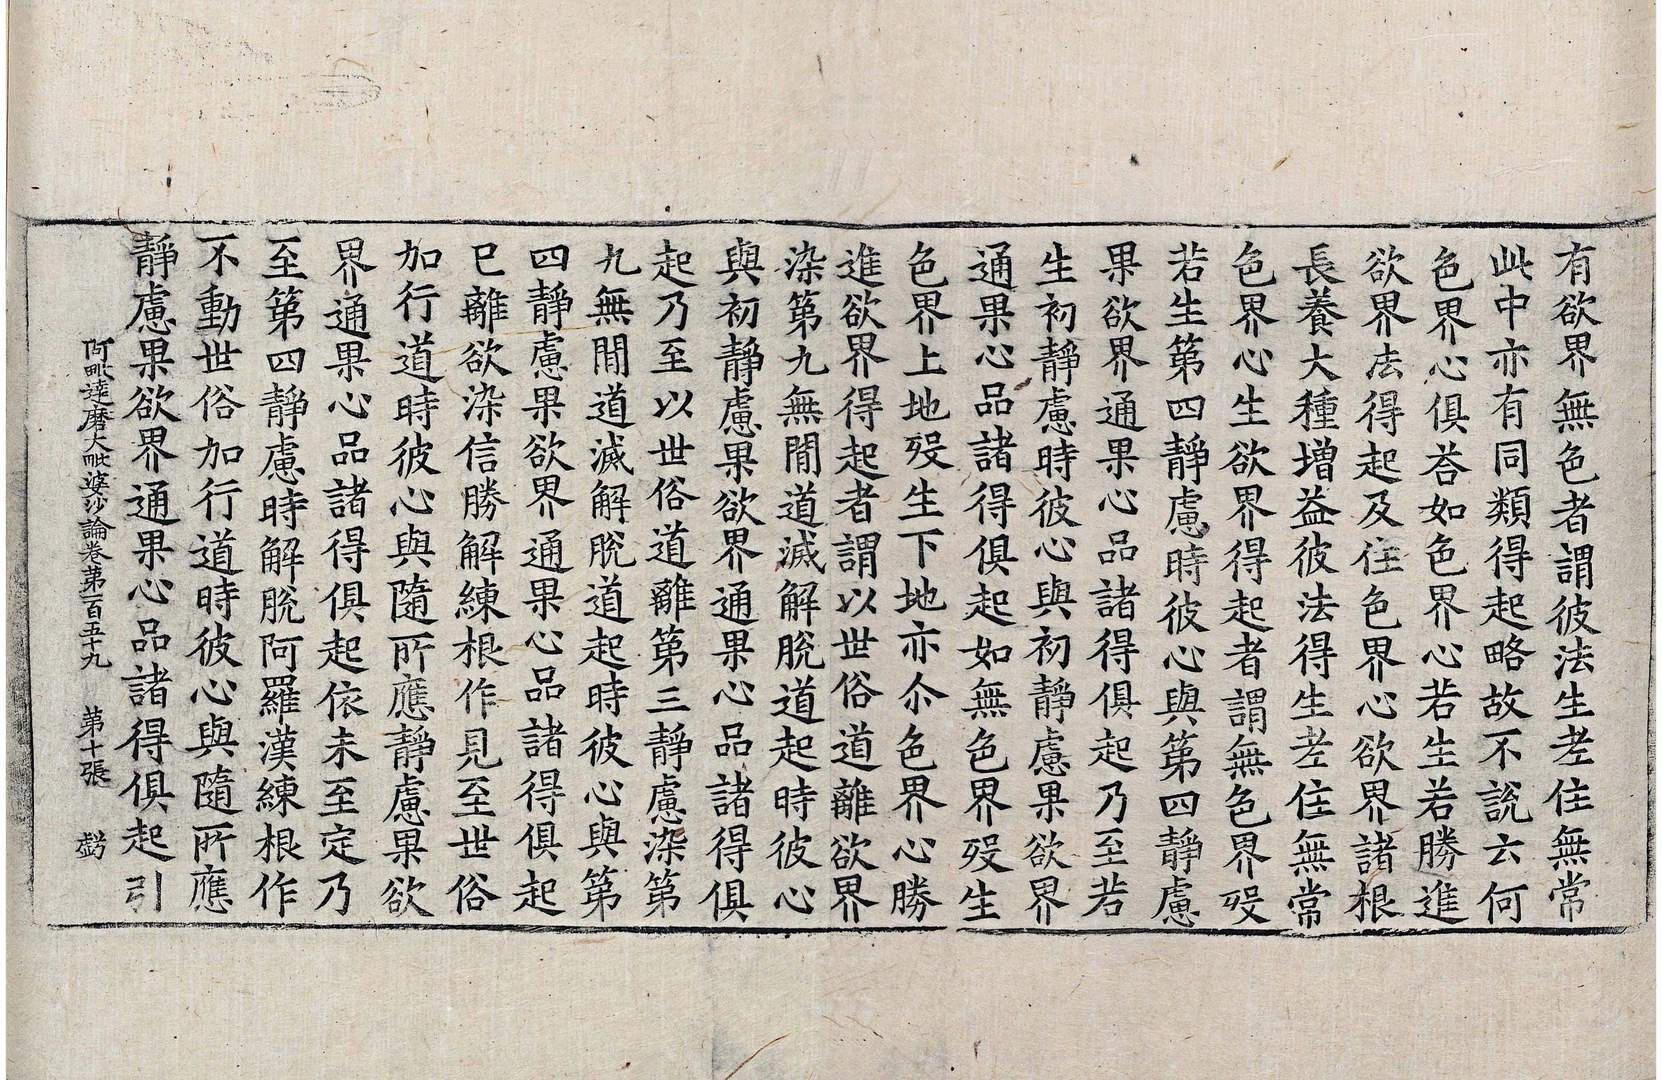 有欲界無色者謂彼法生老住無常
此中亦有同類得起略故不說云何
色界心俱荅如色界心若生若勝進
欲界法得起及住色界心欲界諸根
長養大種增益彼法得生老住無常
色界心生欲界得起者謂無色界歿
若生第四靜慮時彼心與第四靜慮
果欲界通果心品諸得俱起乃至若
生初靜慮時彼心與初靜慮果欲界
通果心品諸得俱起如無色界歿生
色界上地歿生下地亦尒色界心勝
進欲界得起者謂以世俗道離欲界
染第九無間道滅解脫道起時彼心
與初靜慮果欲界通果心品諸得俱
起乃至以世俗道離第三靜慮染第
九無間道滅解脫道起時彼心與第
四靜慮果欲界通果心品諸得俱起
已離欲染信勝解練根作見至世俗
加行道時彼心與隨所應靜慮果欲
界通果心品諸得俱起依未至定乃
至第四靜慮時解脫阿羅漢練根作
不動世俗加行道時彼心與隨所應
靜慮果欲界通果心品諸得俱起引
阿毗達磨大毗婆沙論卷第一百五十九 第十張